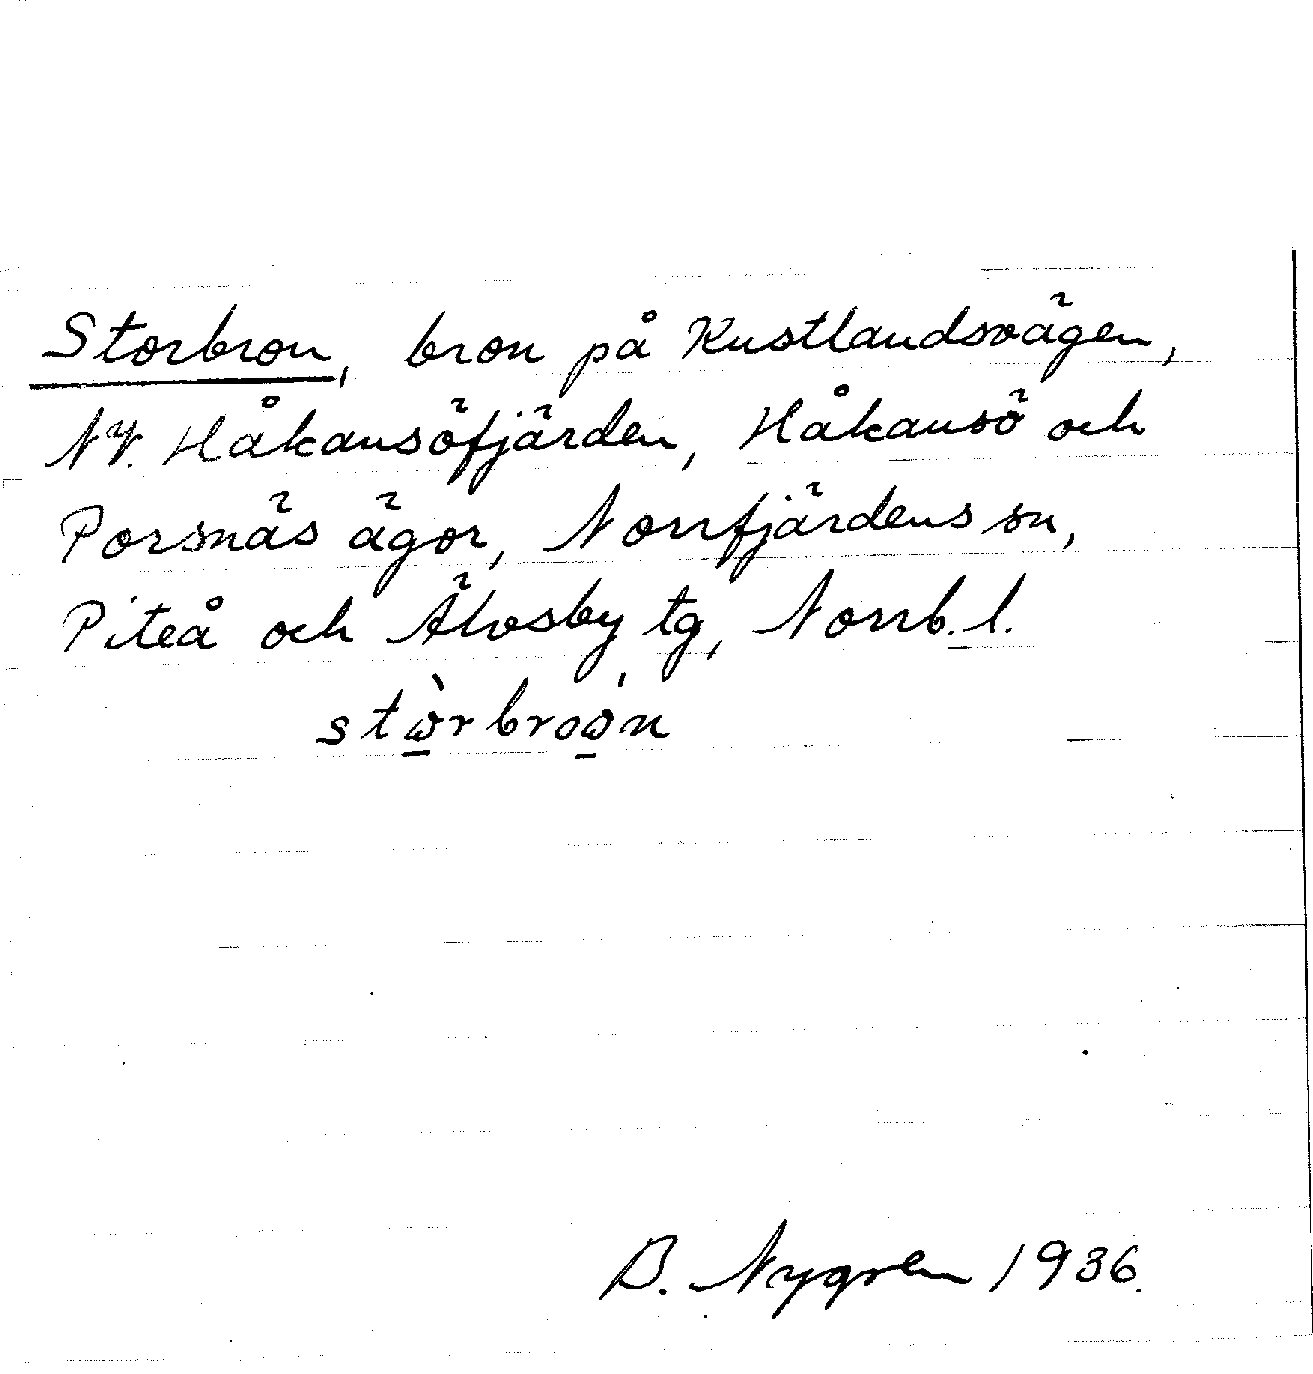 Storbron, bron på Kustlandsvägen,
NV. Håkansöfjärden, Håkansö och
Porsnäs ägor, Norrfjärdens sn,
Piteå och Älvsby tg, Norrb. l.
stὼ̲rbroὼ̲n
B. Nygren 1936.